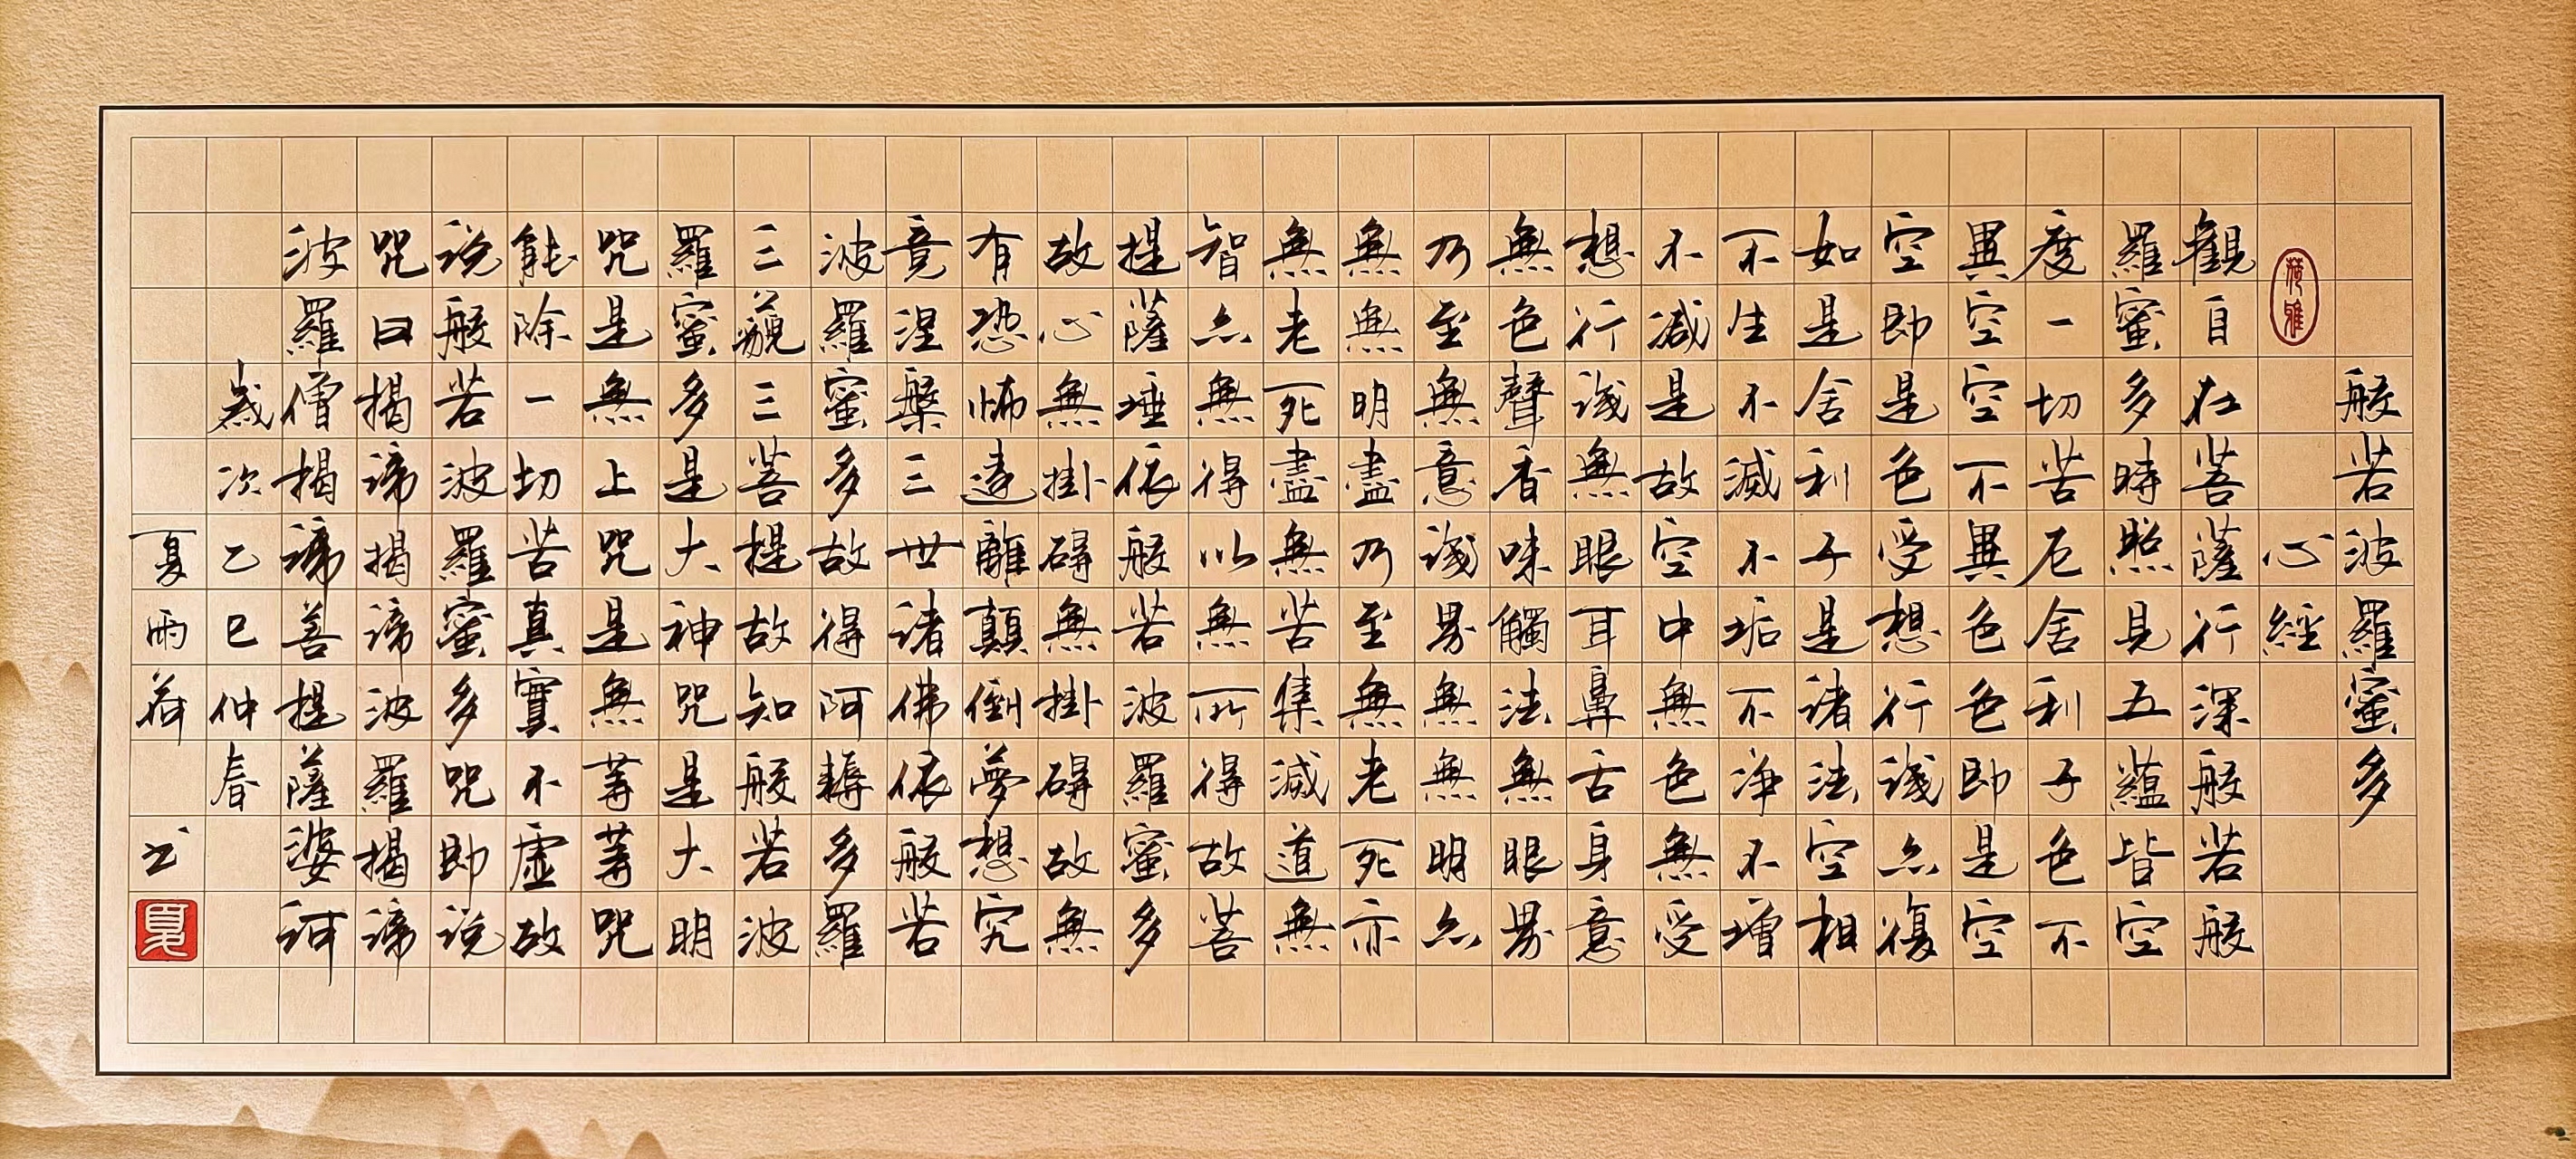 般若波羅蜜多
心經
觀自在菩薩行深般若般
羅蜜多時照見五蘊皆空
度一切苦厄舍利子色不
異空空不異色色即是空
空即是色受想行識亦復
如是舍利子是諸法空相
不生不滅不垢不淨不增
不減是故空中無色無受
想行識無眼耳鼻舌身意
無色聲香味觸法無眼界
乃至無意識界無無明亦
無無明盡乃至無老死亦
無老死盡無苦集滅道無
智亦無得以無所得故菩
提薩埵依般若波羅蜜多
故心無掛礙無掛礙故無
有恐怖遠離顛倒夢想究
竟涅槃三世諸佛依般若
波羅蜜多故得阿耨多羅
三藐三菩提故知般若波
羅蜜多是大神咒是大明
咒是無上咒是無等等咒
能除一切苦真實不虛故
说般若波羅蜜多咒即说
咒曰揭諦揭諦波羅揭諦
波羅僧揭諦菩提薩婆訶
歲次乙巳仲春
夏雨荷书